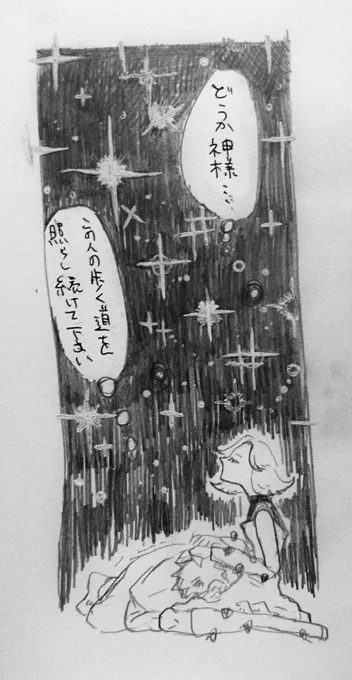 どうか神様…
この人の歩く道を
照らし続けて下さい